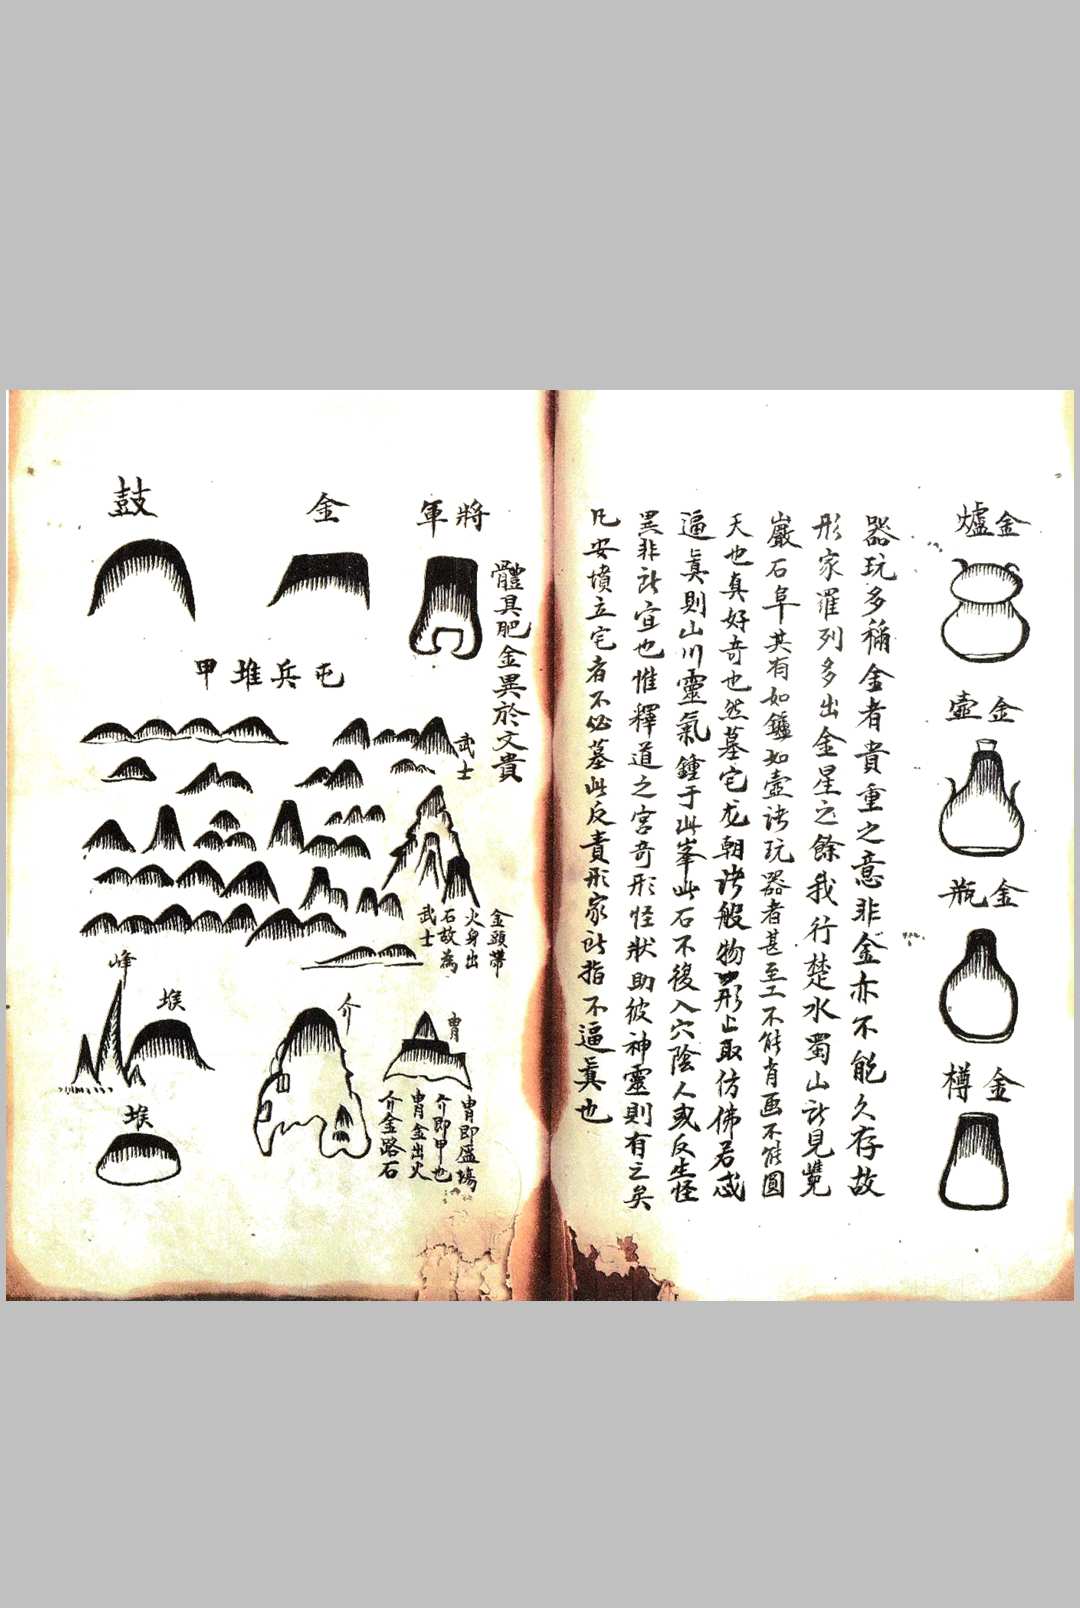 金爐
金壺
金瓶
金樽
器玩多稱金者貴重之意非金亦不能久存故
形家羅列多出金星之餘我行楚水蜀山所見雙
巖石阜其有如鑪如壺諸玩器者甚至工不能肖画不能圓
天也真好奇也然墓宅龙朝諸般物形止取仿佛若惑
逼真則山川靈氣鍾于此峯此石不復入穴陰人或反生怪
異非所宜也惟釋道之宮奇形怪狀助彼神靈則有之矣
凡安墳立宅者不必墓此反責形家所指不逼真也
體具肥金異於文貴
將軍
金
鼓
屯兵堆甲
武士
金頭帶
火身出
石故為
武士
峰
堠
堠
介
冑
冑即盔塲
介即甲也
冑金出火
介金路石